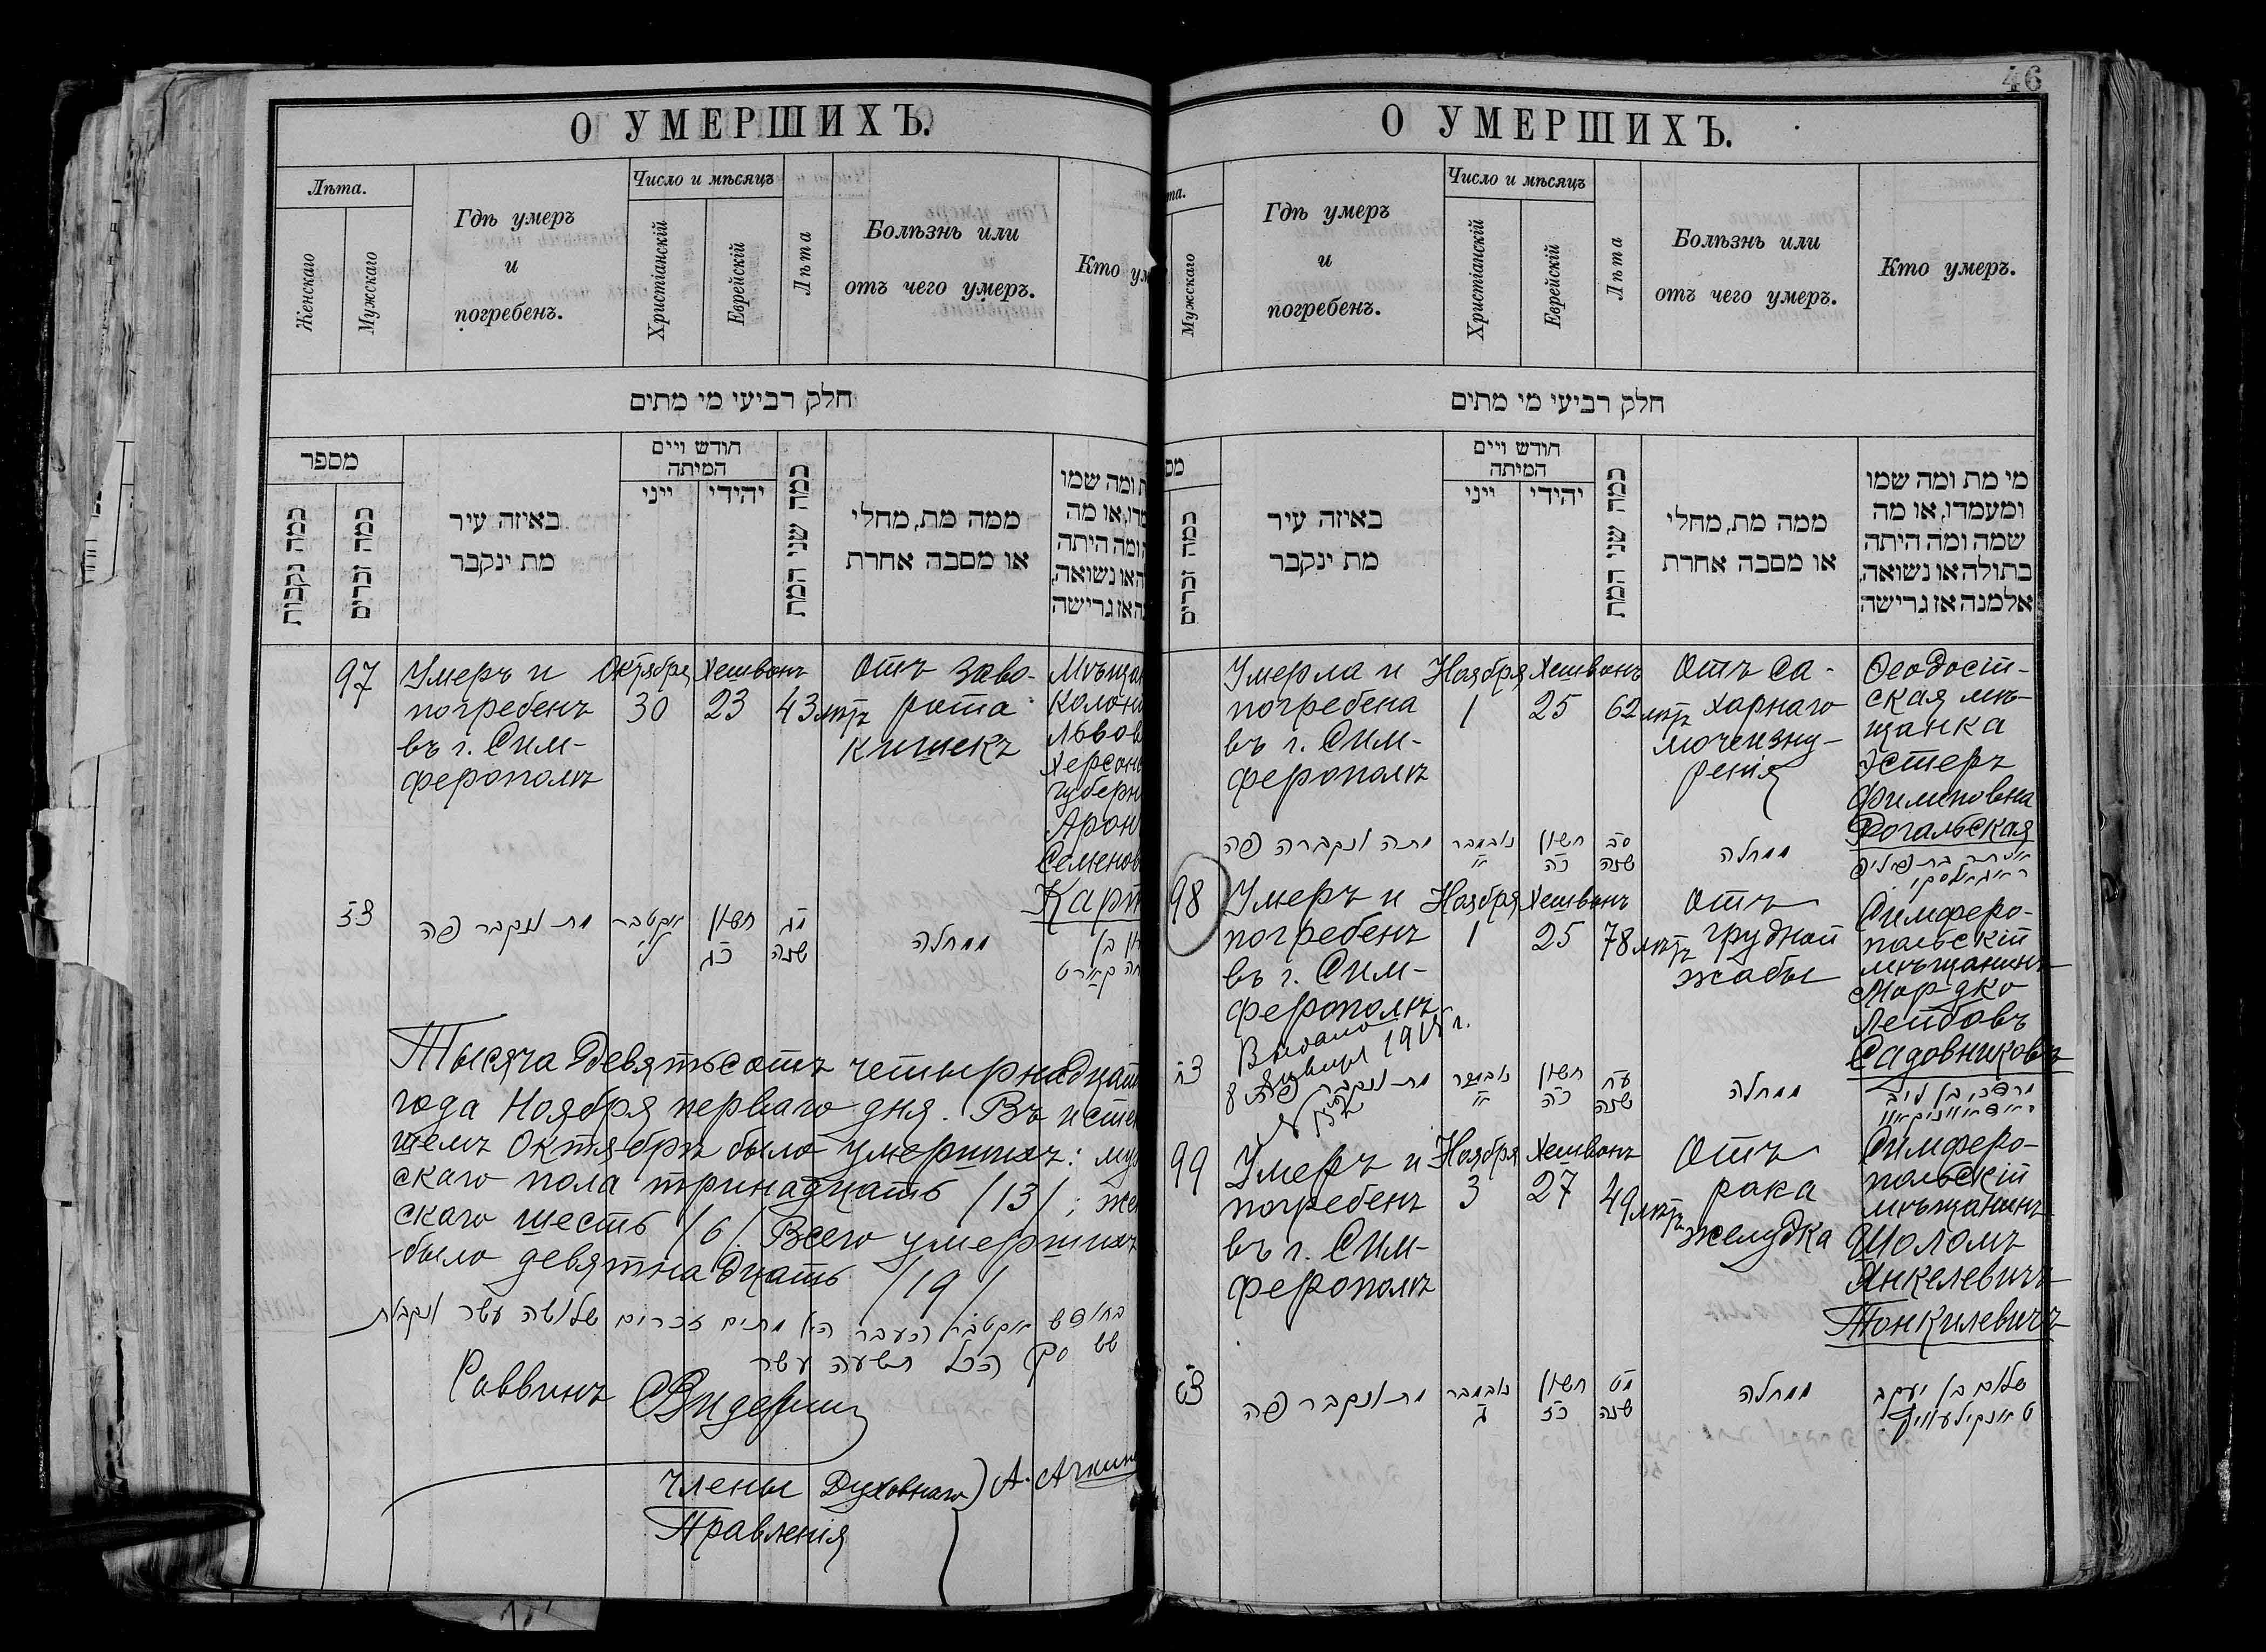 О УМЕРШИХЪ.
Лѣта.
Женскаго
Мужскаго
Гдѣ умеръ
и
погребенъ.
Число и мѣсяцъ
Христіанскій
Еврейскій
Лѣта
Болѣзнь или
отъ чего умеръ.
Кто ум
חלק רביעי מי מתים
מספר
כמה נקבות
כמה זכרים
באיזה עיר
מת ינקבר
חודש ויים
המיתה
ייני
יהידי
כמה שני המת
ממה מת, מחלי
או מסבה אחרת
ת ומה שמו
מדו, או מה
ה ומה היתה
ה או נשואה,
ה אז גרישה
97
Умеръ и
погребенъ
въ г. Сим-
ферополѣ
Октября
30
Хешвонъ
23
43 лѣтъ
Отъ заво-
рота
кишекъ
Мѣщан
Колони
Львов
Херсон
губерн
Арон
Семенов
Карп
צז
מת ונקבר פה
אקטבר
ל
חשון
כג
מג
שנה
ממחלה
Тысяча девятьсотъ четырнадцат
года Ноября перваго дня. Въ исте
шемъ Октябрѣ было умершихъ: му
скаго пола тринадцать /13/; же
скаго шесть /6/ Всего умершихъ
было девятнадцать /19/
בחודש אקטבר העבר היו מתים זכרים שלושה עשר ונקבות
שש ס״ה הכל תשעה עשר
Раввинъ
Члены Духовнаго
Правленія
46
О УМЕРШИХЪ.
та.
Мужскаго
Гдѣ умеръ
и
погребенъ.
Число и мѣсяцъ
Христіанскій
Еврейскій
Лѣта
Болѣзнь или
отъ чего умеръ.
Кто умеръ.
חלק רביעי מי מתים
מס
כמה זכרים
באיזה עיר
מת ינקבר
חודש ויים
המיתה
ייני
יהידי
כמה שני המת
ממה מת, מחלי
או מסבה אחרת
מי מת ומה שמו
ומעמדו, או מה
שמה ומה היתה
בתולה או נשואה,
אלמנה אז גרישה
Умерла и
погребена
въ г. Сим-
ферополѣ
Ноября
1
Хешвонъ
25
62 лѣтъ
Отъ са-
харнаго
мочеизну-
ренія
Ѳеодосій-
ская мѣ-
щанка
Эстеръ
Филиповна
Рогальская
מתה ונקברה פה
נאבמבר
א
חשון
כה
סב
שנה
ממחלה
98
Умеръ и
погребенъ
въ г. Сим-
ферополѣ
Ноября
1
Хешвонъ
25
78 лѣтъ
Отъ
грудной
жабы
Симферо-
польскій
мѣщанинъ
Мордко
Лейбовъ
Садовниковъ
Выдано
8 Января 1915 г.
צח
מת ונקבר פה
נאבמבר
א
חשון
כה
עח
שנה
ממחלה
מרדכי בן ליב
סאדאווניקאוו
99
Умеръ и
погребенъ
въ г. Сим-
ферополѣ
Ноября
3
Хешвонъ
27
49 лѣтъ
Отъ
рака
желудка
Симферо-
польскій
мѣщанинъ
Шоломъ
Янкелевичъ
Тонкилевичъ
צט
מת ונקבר פה
נאבמבר
ג
חשון
כז
מט
שנה
ממחלה
שלום בן יעקב
טאנקילעוויץ